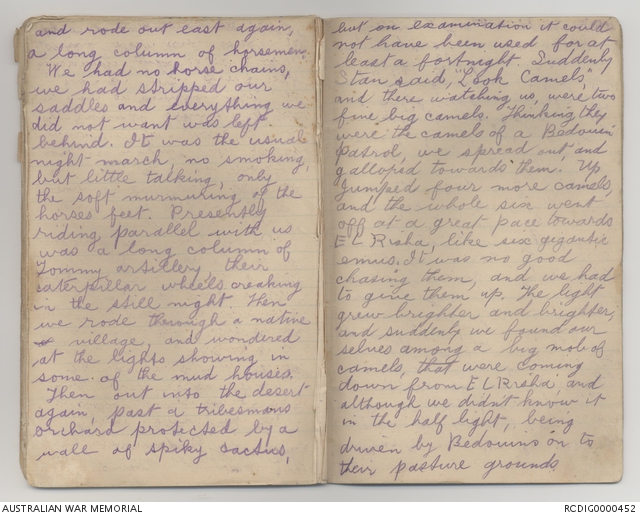 and rode out east again,
a long column of horsemen.
We had no horse chains,
we had stripped our
saddles and everything we
did not want was left
behind. It was the usual
night march, no smoking,
but little talking, only
the soft murmuring of the
horses feet. Presently
riding parallel with us
was a long column of
Tommy artillery, their
caterpillar wheels creaking
in the still night. Then
we rode through a native
village, and wondered
at the lights showing in
some of the mud houses.
Then out into the desert
again, past a tribesmans
orchard protected by a
wall of spiky cactus,
but on examination it could
not have been used for at
least a fortnight. Suddenly
Stan said, "Look Camels,"
and there watching us, were two
fine big camels. Thinking they
were the camels of a Bedouin
patrol, we spread out, and
galloped towards them. Up
jumped four more camels,
and the whole six went
off at a great pace towards
EL Risha, like six gigantic
emus. It was no good
chasing them, and we had
to give them up. The light
grew brighter and brighter,
and suddenly we found our
selves among a big mob of
camels, that were coming
down from EL Risha, and
although we didn't know it
in the half light, being
driven by Bedouins on to
their pasture grounds
AUSTRALIAN WAR MEMORIAL
RCDIG0000452